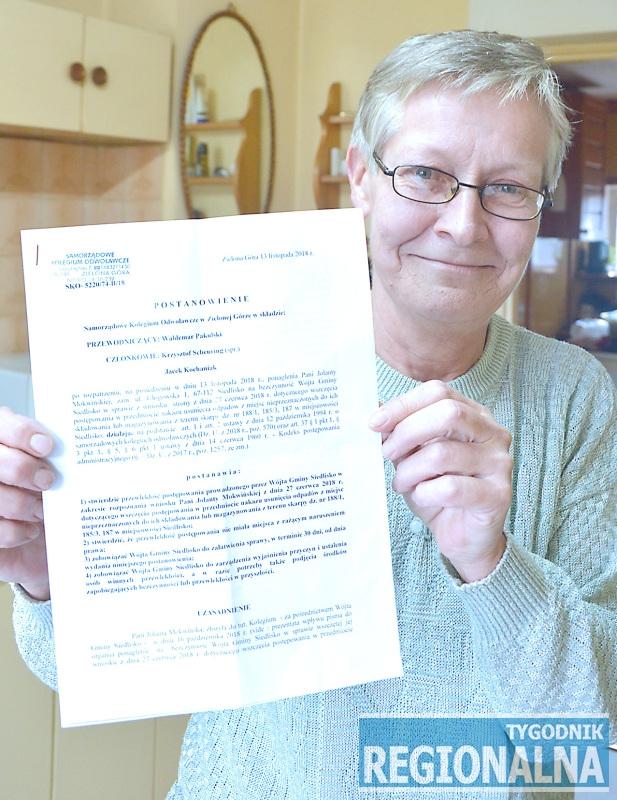 SAMORZĄDOWE
KOLEGIUM ODWOŁAWCZE
ZIELONA GÓRA
SKO- 5220/74-II/18
Zielona Góra 13 listopada 2018 r.
POSTANOWIENIE
Samorządowe Kolegium Odwoławcze w Zielonej Górze w składzie;
PRZEWODNICZĄCY: Waldemar Pakulski
CZŁONKOWIE: Krzysztof Scheusing (spr.)
Jacek Kochaniak
po rozpatrzeniu, na posiedzeniu w dniu 13 listopada 2018 r., ponaglenia Pani Jolanty
Mokwińskiej, zam. ul. Głogowska 1, 67-112 Siedlisko na bezczynność Wójta Gminy
Siedlisko w sprawie z wniosku strony z dnia 27 czerwca 2018 r. dotyczącego wszczęcia
postępowania w przedmiocie nakazu usunięcia odpadów z miejsc nieprzeznaczonych do ich
składowania lub magazynowania z terenu skarpy dz. nr 188/1, 185/3, 187 w miejscowości
Siedlisko, działając na podstawie art. 1 i art. 2 ustawy z dnia 12 października 1994 r. o
samorządowych kolegiach odwoławczych (Dz. U. z 2018 r., poz. 570) oraz art. 37 § 1 pkt 1, §
3 pkt 1, § 5, § 6 pkt 1 ustawy z dnia 14 czerwca 1960 r. - Kodeks postępowania
administracyjnego (tj. Dz. U. z 2017 r., poz. 1257, ze zm.)
postanawia:
1) stwierdzić przewlekłość postępowania prowadzonego przez Wójta Gminy Siedlisko w
zakresie rozpoznania wniosku Pani Jolanty Mokwińskiej z dnia 27 czerwca 2018 r.
dotyczącego wszczęcia postępowania w przedmiocie nakazu usunięcia odpadów z miejsc
nieprzeznaczonych do ich składowania lub magazynowania z terenu skarpy dz. nr 188/1,
185/3, 187 w miejscowości Siedlisko;
2) stwierdzić, że przewlekłość postępowania nie miała miejsca z rażącym naruszeniem
prawa;
3) zobowiązać Wójta Gminy Siedlisko do załatwienia sprawy, w terminie 30 dni, od dnia
wydania niniejszego postanowienia;
4) zobowiązać Wójta Gminy Siedlisko do zarządzenia wyjaśnienia przyczyn i ustalenia
osób winnych przewlekłości, a w razie potrzeby także podjęcia środków
zapobiegających bezczynności lub przewlekłości w przyszłości.
UZASADNIENIE
Pani Jolanta Mokwińska, złożyła do tut. Kolegium - za pośrednictwem Wójta
Gminy Siedlisko - w dniu 16 października 2018 r. (vide : prezentata wpływu pisma do
organu) ponaglenie na bezczynność Wójta Gminy Siedlisko w sprawie wszczętej jej
wniosku z dnia 27 czerwca 2018 r. dotyczącego wszczęcia postępowania w przedmiocie
TYGODNIK
REGIONALNA